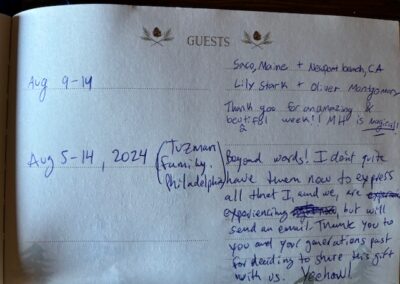 GUESTS
Aug 9-14
Saco, Maine + Newport beach, CA
Lily Stark + Oliver Montgomery
Thank you for an amazing &
beautiful week! MH is magical!
Aug 5-14, 2024
(Tuzman
family.
Philadelphia
Beyond words! I don't quite
have them now to express
all that I, and we, are
experiencing, but will
send an email. Thank you to
you and your generations past
for deciding to share this gift
with us. Yeehaw!